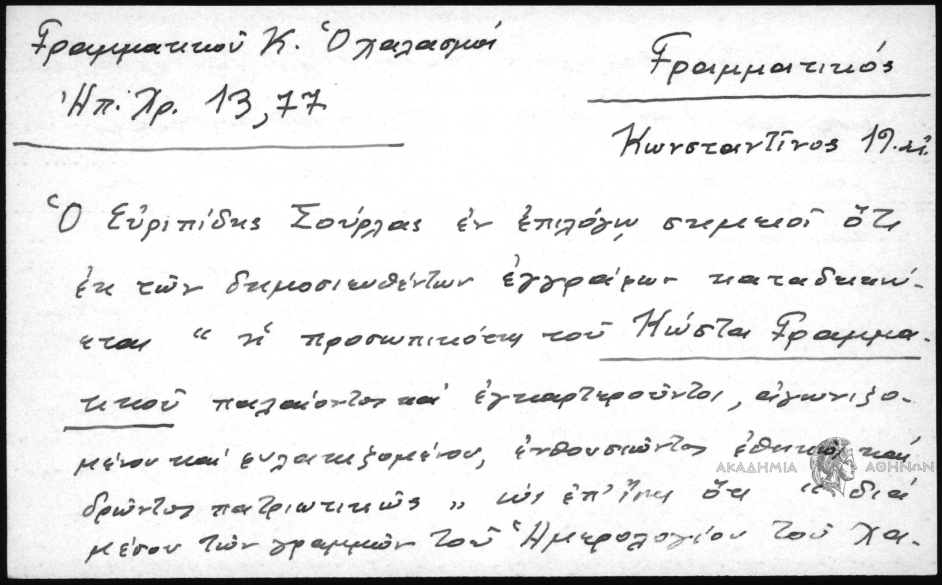 Γραμματικοῦ Κ. Ὁ χαλασμοί
Ἠπ. Χρ. 13, 77
Γραμματικός
Κωνσταντῖνος 19.
Ὁ Εὐριπίδης Σούρλας ἐν ἐπιλόγῳ σημειοῖ ὅτι
ἐκ τῶν δημοσιευθέντων ἐγγράφων καταδεικνύ-
εται " ἡ προσωπικότης τοῦ Κώστα Γραμμα-
τικοῦ παλαίοντος καί ἐγκαρτεροῦντος, ἀγωνιζο-
μένου καί φυλακιζομένου, ἐνθουσιῶντος καί
δρῶντος πατριωτικῶς " ὡς ἐπ' ἴσης ὅτι " διά
μέσου τῶν γραμμῶν τοῦ Ἡμερολογίου τοῦ Χα-
ΑΚΑΔΗΜΙΑ ΑΘΗΝΩΝ